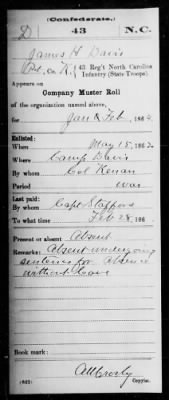 (Confederate.)
D 43 N.C.
James H Davis
Pvt, Co. K, 43 Reg't North Carolina
Infantry (State Troops)
Appears on
Company Muster Roll
of the organization named above,
for Jan & Feb, 1864
Enlisted:
When May 15, 1862
Where Camp Davis
By whom Col Kenan
Period war
Last paid:
By whom Capt
To what time Feb 28, 186
Present or absent Absent
Remarks: Absent undergoing
sentence for absence
without leave
Book mark:
(642) Copyist.